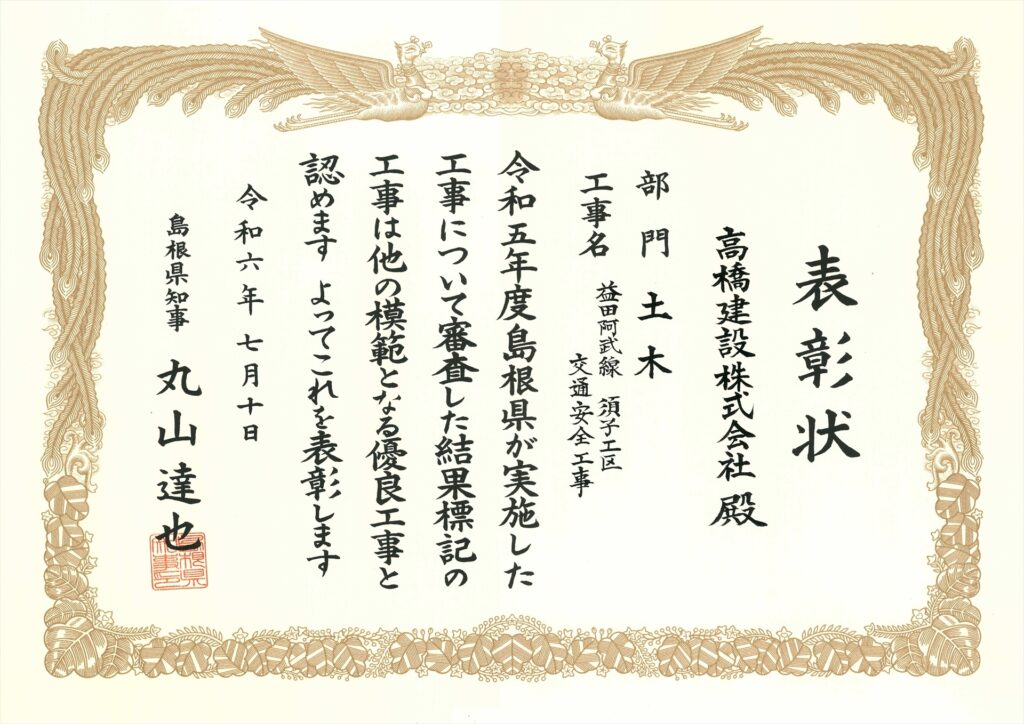 表彰状
高橋建設株式会社 殿
部門 土木
工事名 益田阿武線 須子工区
交通安全工事
令和五年度島根県が実施した
工事について審査した結果標記の
工事は他の模範となる優良工事と
認めます よってこれを表彰します
令和六年七月十日
島根県知事 丸山達也